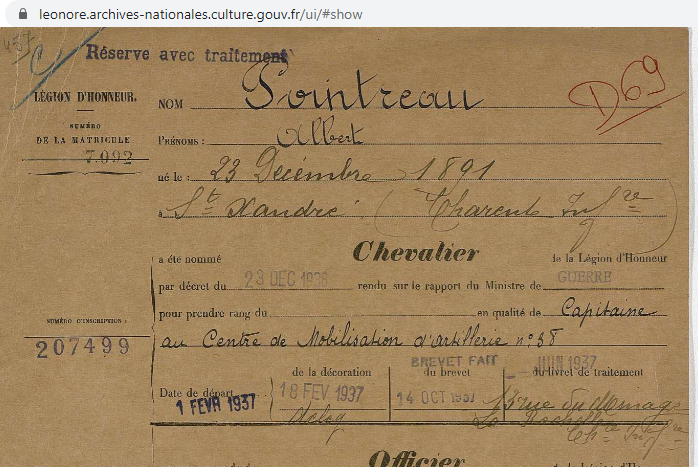 leonore.archives-nationales.culture.gouv.fr/ui/#show
Réserve avec traitement
LÉGION D'HONNEUR.
NUMÉRO
DE LA MATRICULE
7.092
NOM Pointreau
D69
PRÉNOMS : Albert
né le : 23 Décembre 1891
à St Xandre (Charente Infre)
a été nommé Chevalier de la Légion d'Honneur
par décret du 23 DEC 1936 rendu sur le rapport du Ministre de GUERRE
pour prendre rang du en qualité de Capitaine
au Centre de Mobilisation d'artillerie n° 38
NUMÉRO D'INSCRIPTION :
207499
BREVET FAIT JUIN 1937
de la décoration du brevet du livret de traitement
Date de départ 18 FEV 1937 14 OCT 1937
1 FEVR 1937
13 rue du Minage
La Rochelle
Chte Infre
Officier